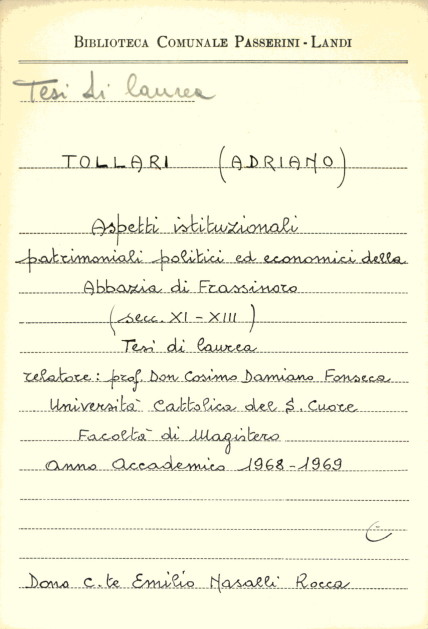 BIBLIOTECA COMUNALE PASSERINI - LANDI
Tesi di laurea
TOLLARI (ADRIANO)
Aspetti istituzionali
patrimoniali politici ed economici della
Abbazia di Frassinoro
(secc. XI - XIII)
Tesi di laurea
relatore: prof. Don Cosimo Damiano Fonseca
Università Cattolica del S. Cuore
Facoltà di Magistero
anno Accademico 1968-1969
Dono C.te Emilio Nasalli Rocca